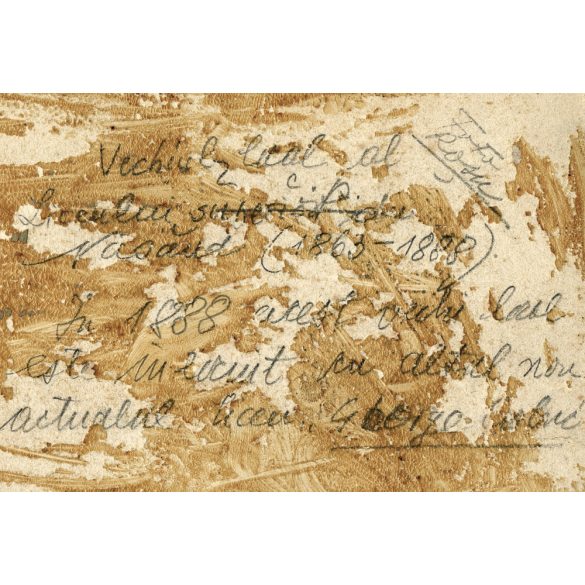 Vechiul local al
Liceului din
Năsăud (1863-1888)
În 1888 acest vechi local
este înlocuit cu altul nou
actualul liceu, George Coșbuc
Foto